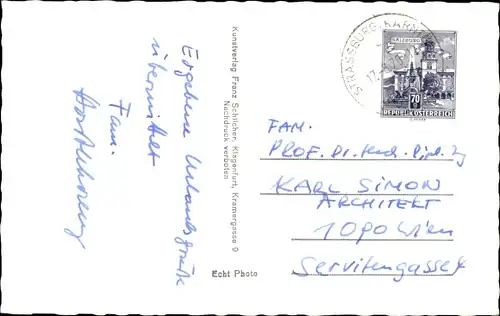 Ergebene Urlaubsgrüße
übermittelt
Fam.
Kunstverlag Franz Schilcher, Klagenfurt, Kramergasse 9
Nachdruck verboten
Echt Photo
STRASSBURG, KÄRNTEN
SALZBURG
70
REPUBLIK ÖSTERREICH
FAM.
PROF. Dr. Techn. Dipl. Ing
KARL SIMON
ARCHITEKT
1090 Wien
Servitengasse 4